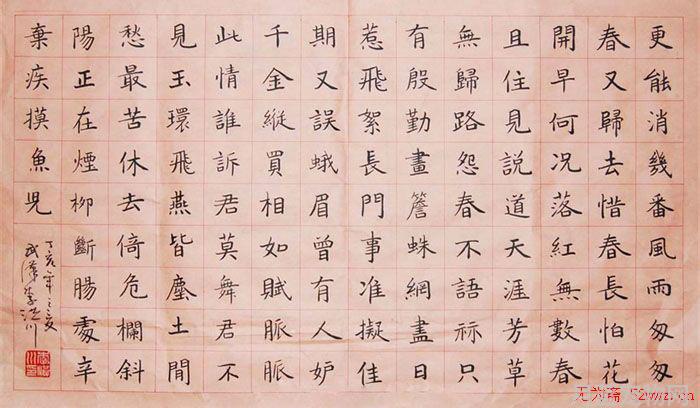 更能消幾番風雨匆匆
春又歸去惜春長怕花
開早何况落紅無數春
且住見説道天涯芳草
無歸路怨春不語祘只
有殷勤畫簷蛛網盡日
惹飛絮長門事准擬佳
期又誤蛾眉曾有人妒
千金縱買相如賦脈脈
此情誰訴君莫舞君不
見玉環飛燕皆塵土閒
愁最苦休去倚危欄斜
陽正在煙柳斷腸處辛
棄疾摸魚兒
丁亥年之夏
武漢李川
无为斋 52wwz.cn